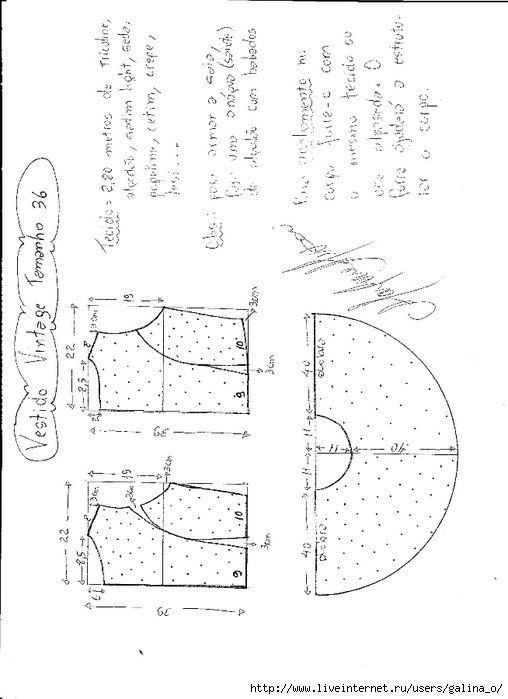 Vestido Vintage Tamanho 36
Tecido = 2,20 metros de tricoline,
algodão, cetim light, seda,
popeline, cetim, crepe,
Obs: para armar a saia,
faz uma anágua (saiote)
de algodão com babados
Para acabamento no
corpo forre-o com
o mesmo tecido ou
O
forro ajudará a estrutu-
rar o corpo.
22
8,5
19
3cm
3cm
9
10
3cm
39
22
8,5
8
3cm
19
3cm
9
10
3cm
39
40
11
11
40
dobra
dobra
11
40
http://www.liveinternet.ru/users/galina_o/